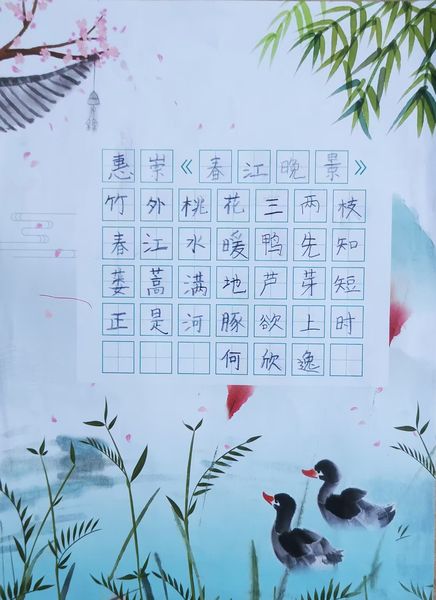 惠崇《春江晚景》
竹外桃花三两枝
春江水暖鸭先知
蒌蒿满地芦芽短
正是河豚欲上时
何欣逸